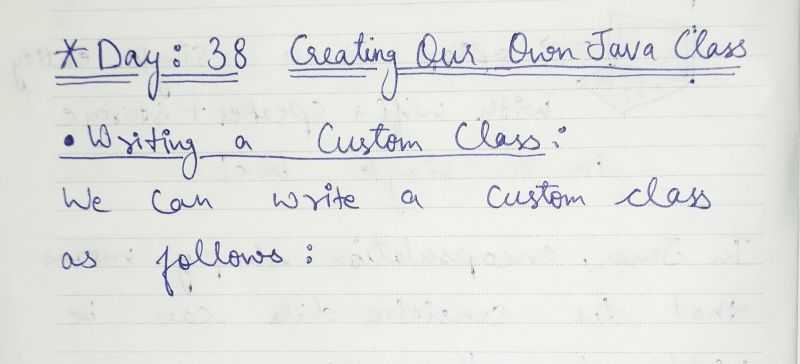 * Day: 38 Creating Our Own Java Class
• Writing a Custom Class:
We can write a custom class
as follows: